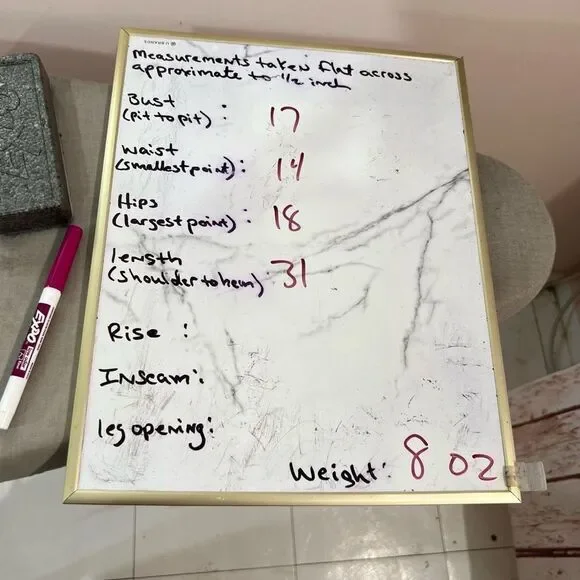 U BRANDS
Measurements taken flat across
approximate to 1/2 inch
Bust :
(pit to pit) : 17
Waist
(smallest point) : 14
Hips
(largest point) : 18
length
(shoulder to hem) : 31
Rise :
Inseam :
leg opening :
Weight : 8 oz
EXPO